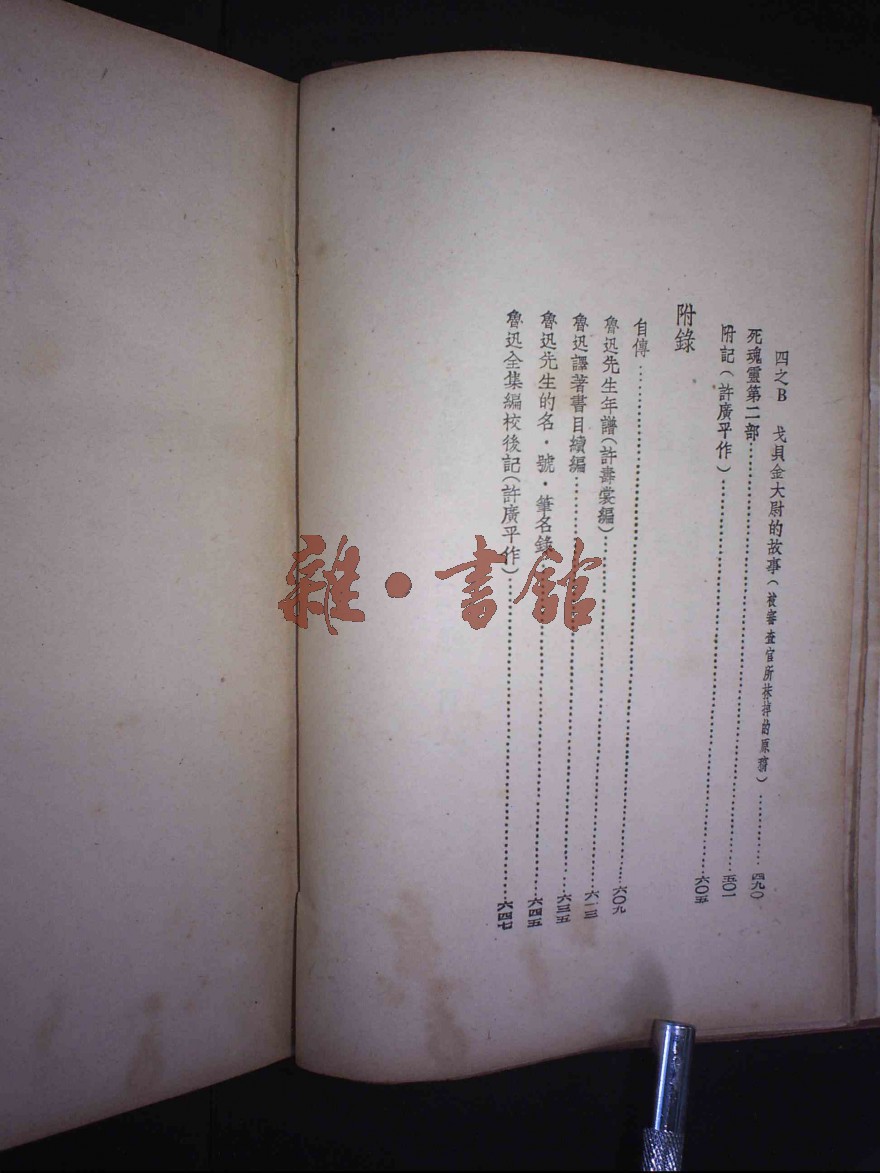 四之B 戈貝金大尉的故事(被審查官所抹掉的原稿)……四九〇
死魂靈第二部……五〇一
附記(許廣平作)……六〇五
附錄
自傳……六〇九
魯迅先生年譜(許壽裳編)……六一三
魯迅譯著書目續編……六三五
魯迅先生的名・號・筆名錄……六四五
魯迅全集編校後記(許廣平作)……六四七
雜・書館